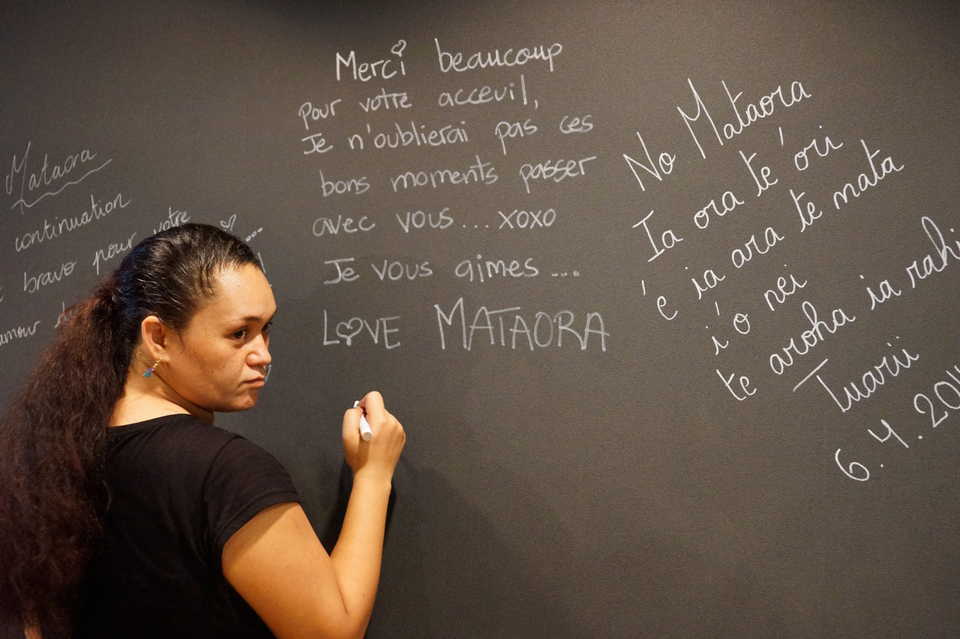 Mataora
continuation
bravo pour votre
amour
Merci beaucoup
pour votre acceuil,
Je n'oublierai pas ces
bons moments passer
avec vous... xoxo
Je vous aimes...
LOVE MATAORA
No Mataora
Ia ora te 'ori
'e ia ara te mata
i 'ō nei
te aroha ia rahi
Tuarii
6.4.201